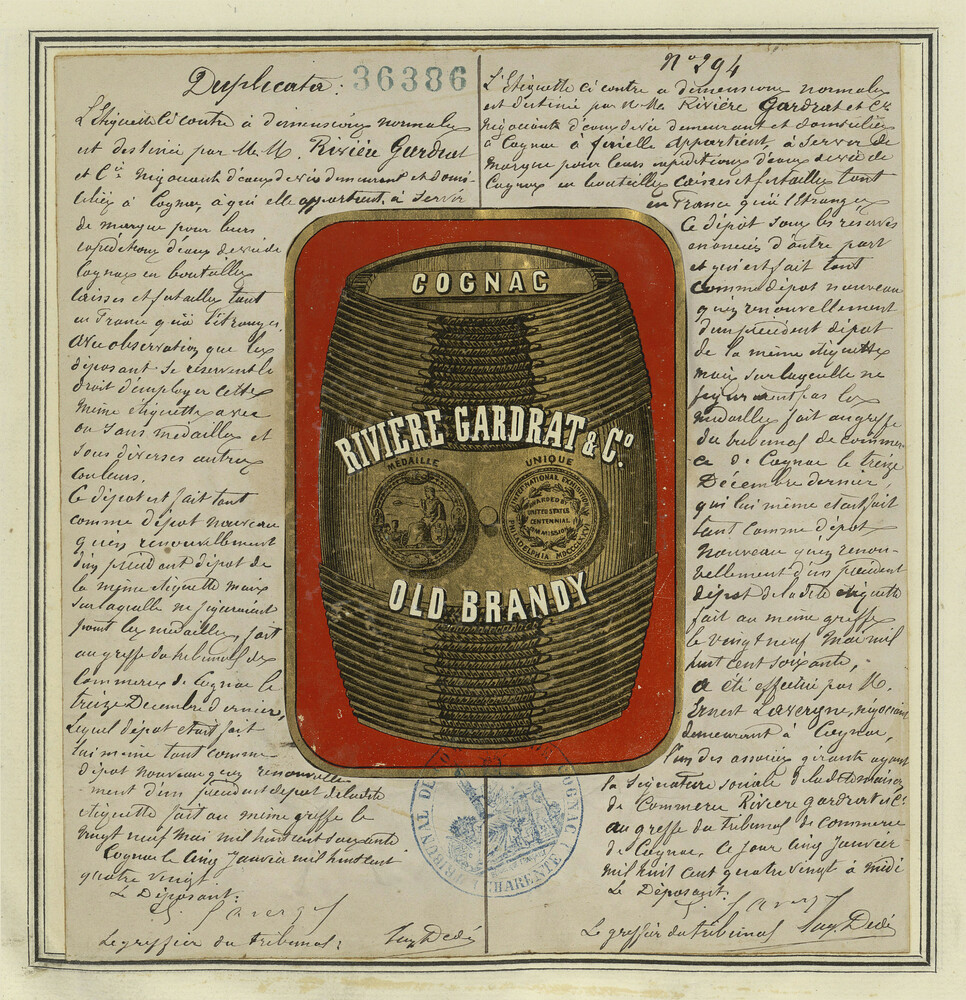 Duplicata: 36386
L'Etiquette ci contre à dimensions normales
est destinée par M.M. Rivière Gardrat
et Cie négociants d'eaux de vie demeurant et domi-
ciliés à Cognac, à qui elle appartient, à servir
de marque pour leurs
expéditions d'eaux de vie de
Cognac en bouteilles
caisses et futailles tant
en France qu'à l'étranger,
avec observation que les
déposants se reservent le
droit d'employer cette
même étiquette avec
ou sans médailles et
sous diverses autres
couleurs.
Ce dépot est fait tant
comme dépot nouveau
qu'en renouvellement
d'un précédent dépot de
la même étiquette mais
sur laquelle ne figuraient
point les médailles, fait
au greffe du tribunal de
Commerce de Cognac le
treize Décembre dernier,
lequel dépot etait fait
lui même tant comme
dépot nouveau qu'en renouvelle-
ment d'un précédent depot de la dite
étiquette fait au même greffe le
vingt neuf mai mil huit cent soixante.
Cognac le cinq Janvier mil huit cent
quatre vingt.
Le Déposant:
E. Lavergne
Le greffier du tribunal: Aug. Dedé
No 294
L'Etiquette ci contre à dimensions normales
est destinée par M.M. Rivière Gardrat et Cie
négociants d'eaux de vie demeurant et domiciliés
à Cognac à qui elle appartient, à servir de
marque pour leurs expéditions d'eaux de vie de
Cognac en bouteilles caisses et futailles tant
en France qu'à l'étranger
Ce dépot sous les reserves
enoncées d'autre part
et qui est fait tant
comme dépot nouveau
qu'en renouvellement
d'un précédent dépot
de la même étiquette
mais sur laquelle ne
figuraient pas les
médailles fait au greffe
du tribunal de commer-
ce de Cognac le treize
Décembre dernier,
qui lui même etait fait
tant comme dépot
nouveau qu'en renou-
vellement d'un précédent
dépot de la dite étiquette
fait au même greffe
le vingt neuf mai mil
huit cent soixante,
a été effectué par M.
Ernest Lavergne, négociant
demeurant à Cognac,
l'un des associés gérants ayant
la signature sociale de la dite maison
de Commerce Rivière Gardrat et Cie
au greffe du tribunal de commerce
de Cognac, ce jour cinq janvier
mil huit cent quatre vingt à midi
Le Déposant:
E. Lavergne
Le greffier du tribunal Aug. Dedé
COGNAC
RIVIÈRE GARDRAT & Co.
MÉDAILLE UNIQUE
INTERNATIONAL EXHIBITION
AWARDED BY
UNITED STATES
CENTENNIAL
COMMISSION
PHILADELPHIA MDCCCLXXVI
OLD BRANDY
TRIBUNAL DE COGNAC
CHARENTE